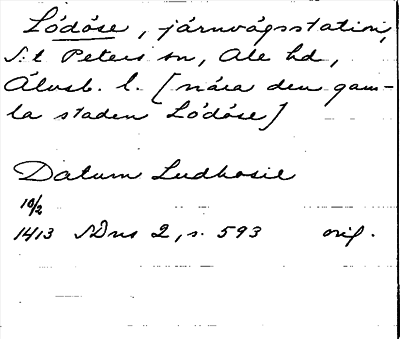 Lödöse, järnvägsstation,
S:t Peters sn, Ale hd,
Älvsb. l. [nära den gam-
la staden Lödöse]
Datum Ludhosie
10/2
1413 SDns 2, s. 593 orig.